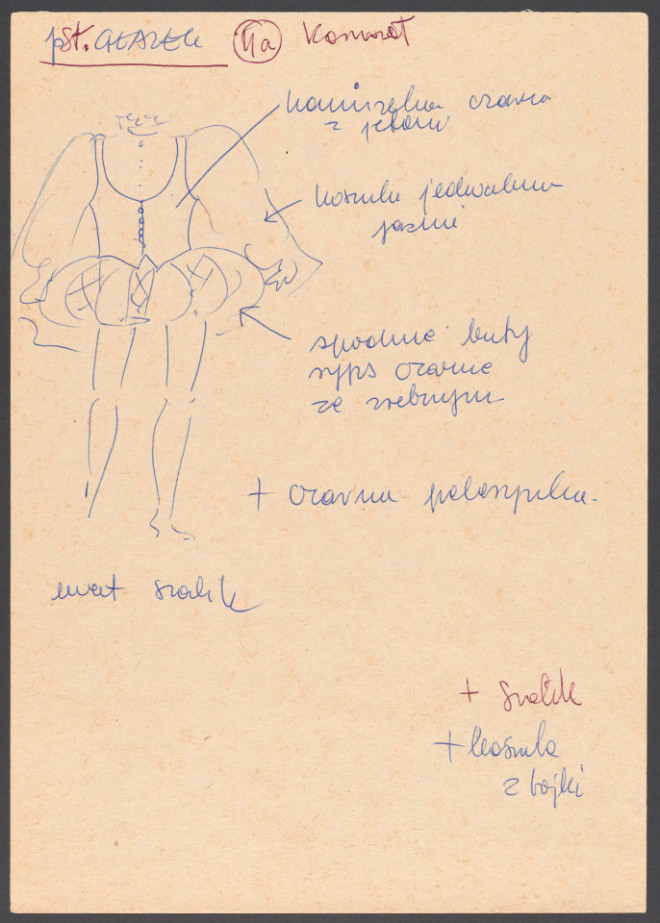 p St. GŁAZEK 11a Konwrot
kamizelka czarna
z jetami
koszula jedwabna
jasna
spodnie bufy
ryps czarne
ze srebrnym
+ czarna peleryna.
szalik
+ szalik
+ koszula
z bajki